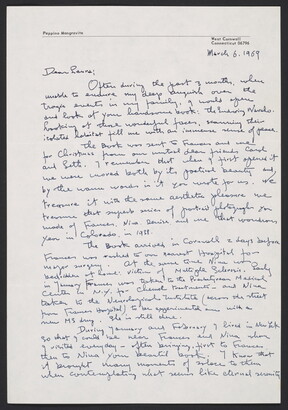 Peppino Mangravite
West Cornwall
Connecticut 06796
March 6, 1969
Dear Laura:
Often during the past 3 months, when
unable to endure my deep anguish over the
tragic events in my family, I would open
and look at your handsome book: The Enduring Navaho.
Looking at those beautiful faces, scanning their
isolated habitat fill me with an immense sense of peace.
The Book was sent to Frances and me
for Christmas from our mutual dear friends
and Seth. I remember that when I first opened it
we were moved both by its poetical beauty and
by the warm words in it you wrote for us. We
treasure it with the same aesthetic pleasure we
treasure that superb series of portrait photographs you
made of Frances, Nina Denise and me that wondrous
year in Colorado in
The Book arrived in Cornwall 2 days before
Frances was rushed to our nearest Hospital for
major surgery. At the same time Nina was
bedridden at home: victim of Multiple Sclerosis. Early
in January Frances was taken to the Presbyterian Medical
Center in N.Y. for Cobalt treatments — and Nina
taken to the Neurological Institute (across the street
from Frances Hospital) to be experimented on with a
new MS drug. She is still there.
During January and February I lived in New York
so that I could be near Frances and Nina whom
I visited everyday — often bringing, first to Frances
then to Nina your beautiful book. I know that
it brought many moments of solace to them
when contemplating what seems like eternal serenity